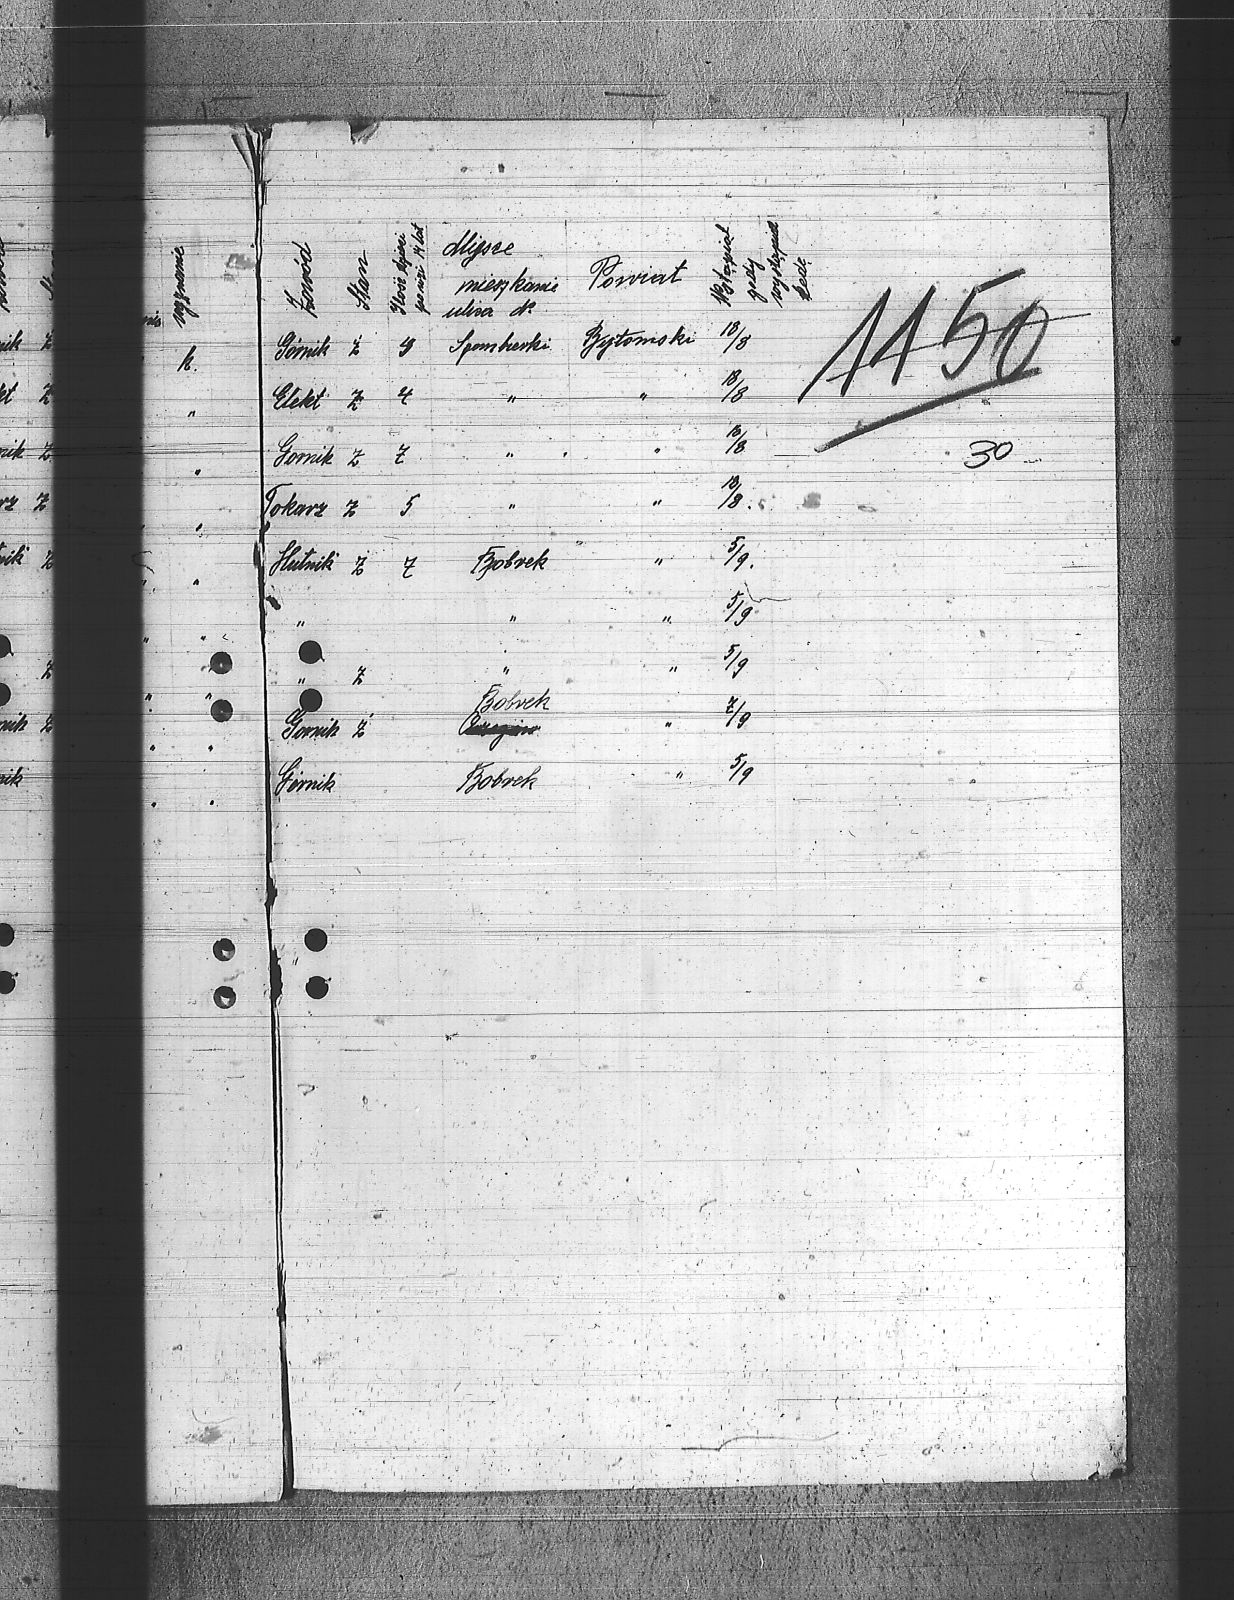 wyznanie Zawód Stan Ilość dzieci poniżi 14 lat Mijsce mieszkanie ulica № Powiat Wstąpiał gedy wystąpiał
k. Górnik Ż 9 Szombierki Bytomski 18/8
1150
" Elekt Ż 4 " " 18/8
" Gornik Ż 7 " " 18/8
30
" Tokarz Ż 5 " " 18/8.
" " Hutnik Ż 7 Bobrek " 5/9.
" " " " " 5/9
" " " Ż " " 5/9
" " Gornik Ż Bobrek " 7/9
" " Górnik Bobrek " 5/9